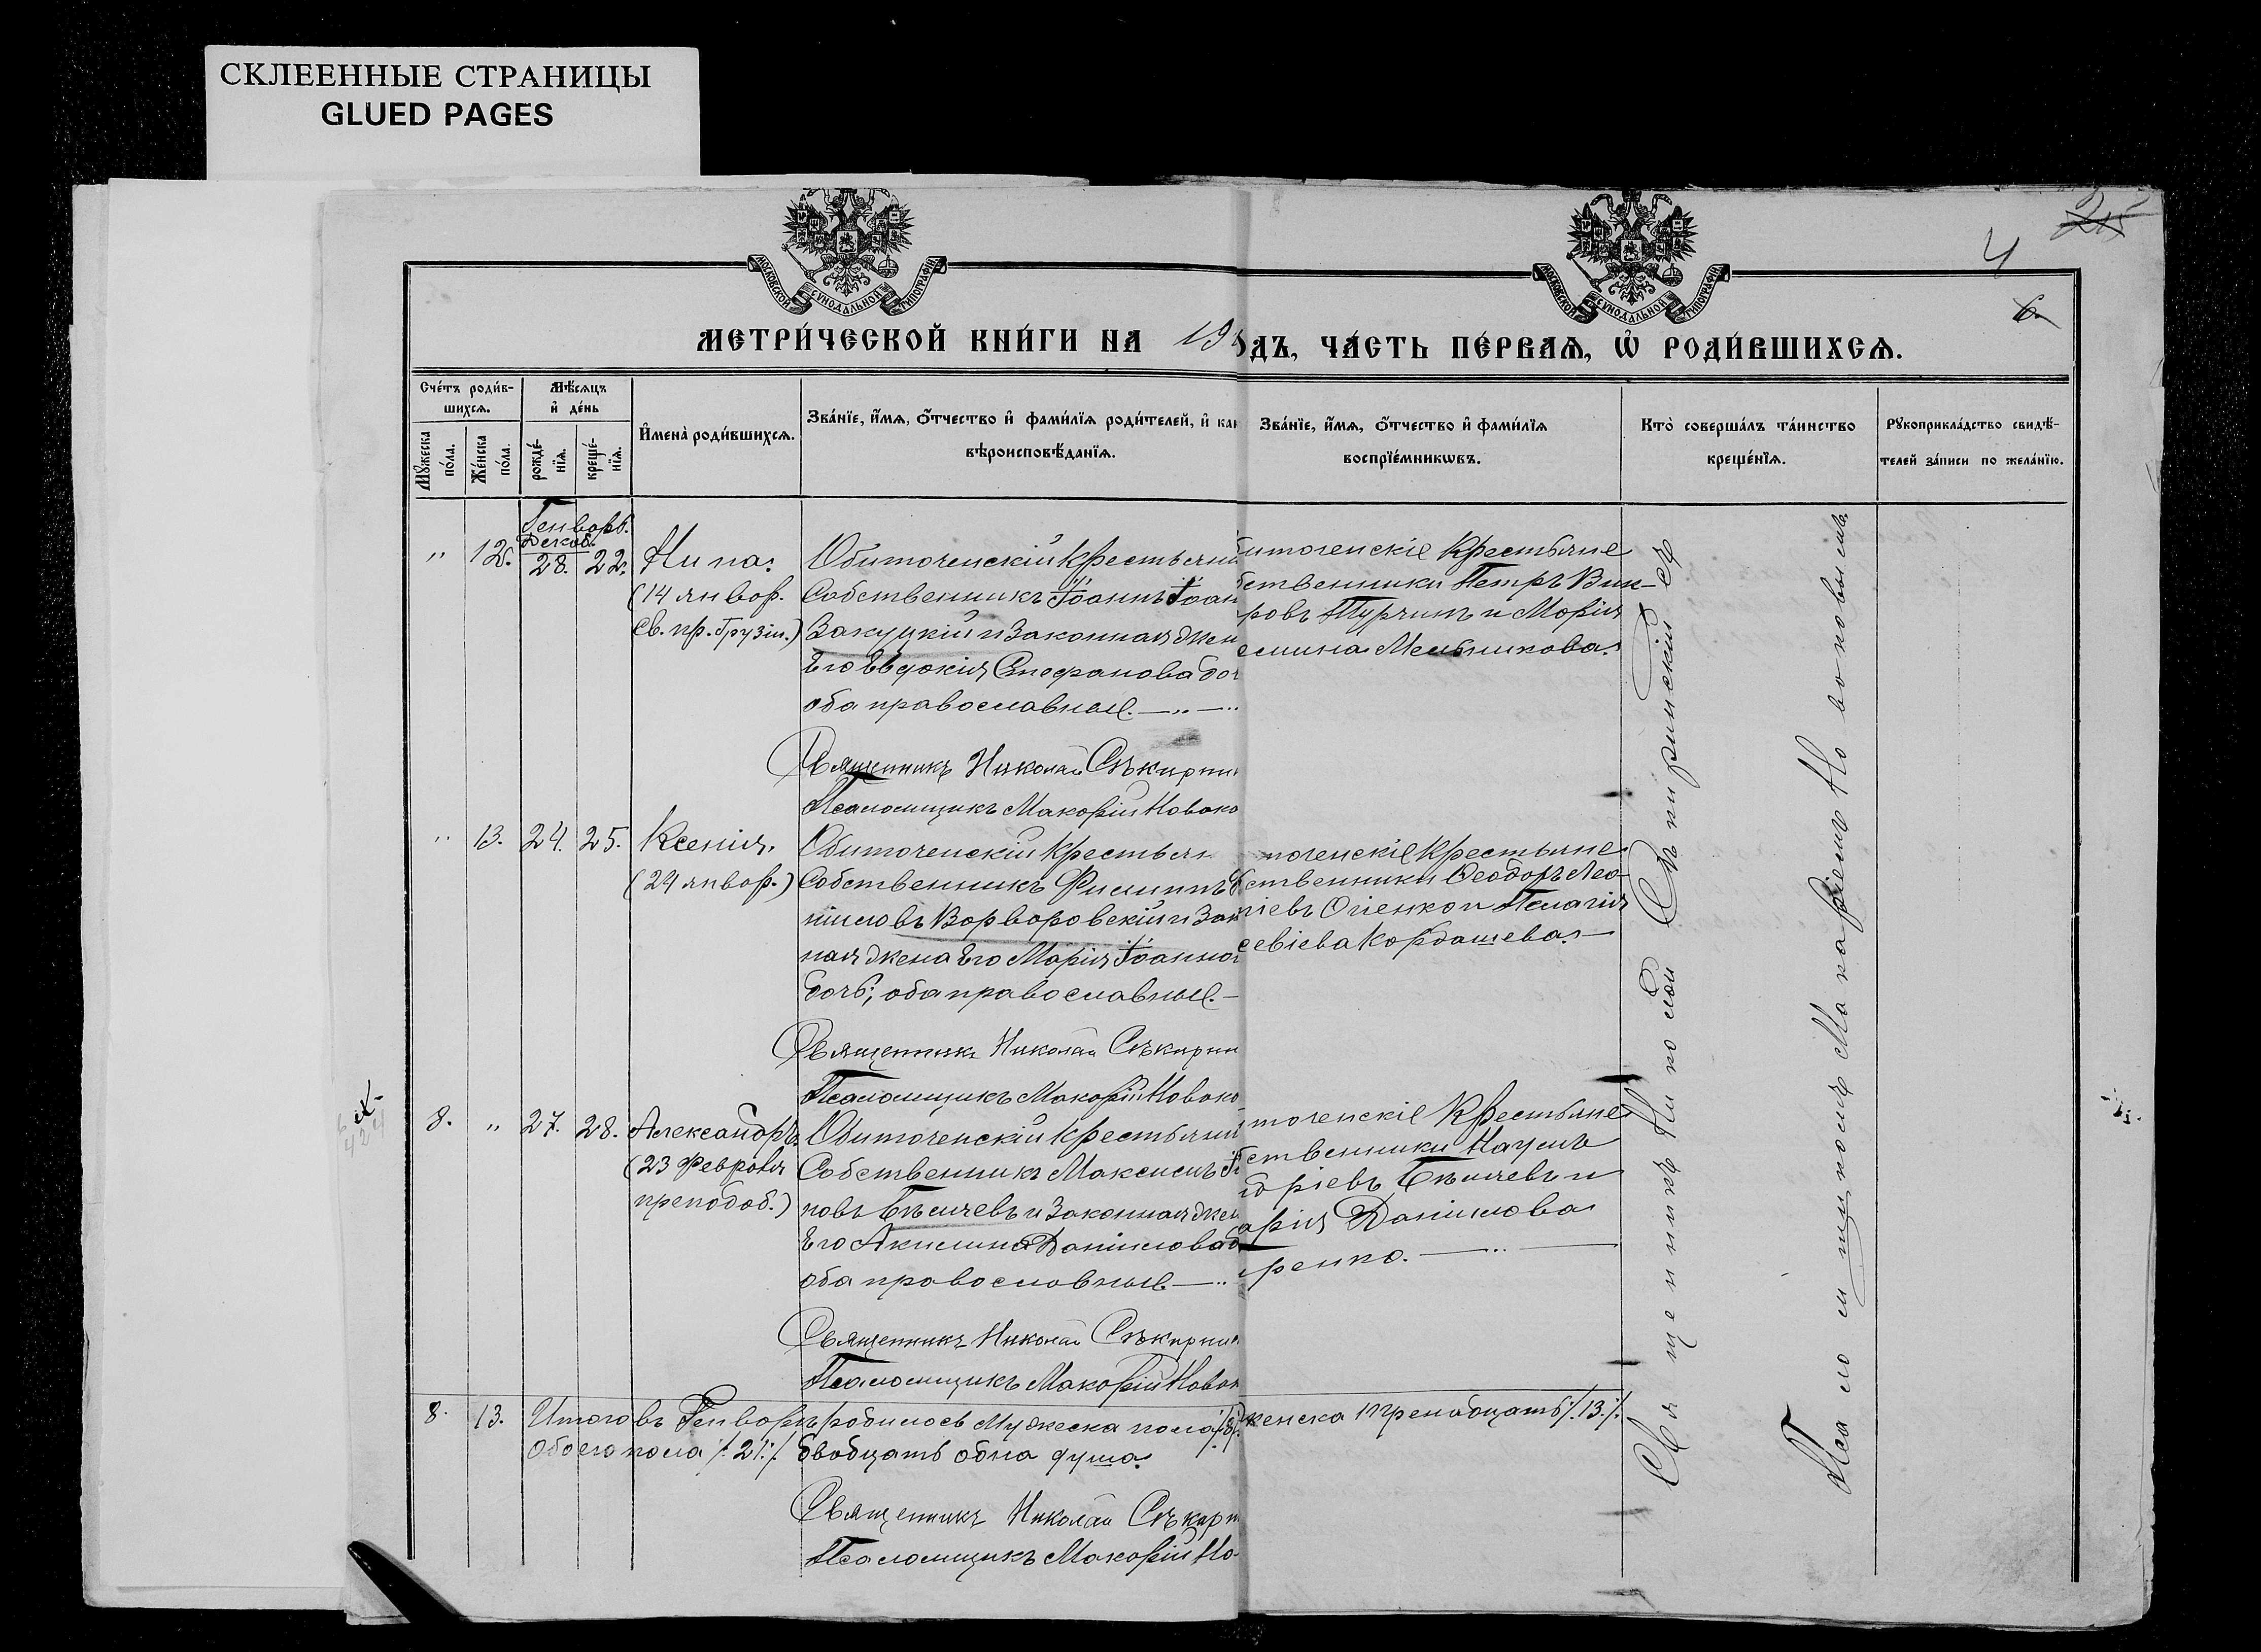 СКЛЕЕННЫЕ СТРАНИЦЫ
GLUED PAGES
МОСКОВСКОЙ СУНОДАЛЬНОЙ ТИПОГРАФІИ
МОСКОВСКОЙ СУНОДАЛЬНОЙ ТИПОГРАФІИ
25
4
6.
МЕТРИ́ЧЕСКОЙ КНИ́ГИ НА 19
ОДЪ, ЧА́СТЬ ПЕ́РВАѦ, Ѡ РОДИ́ВШИХСѦ.
Счéтъ роди́в-
шихсѧ.
Мꙋжеска по́ла.
Же́нска по́ла.
Мѣ́сяцъ
и҆ де́нь
рожде́-
нїѧ.
креще́-
нїѧ.
И҆мена̀ роди́вшихсѧ.
Зва́нїе, и҆́мѧ, ѻ҆́тчество и҆ фами́лїѧ роди́телей, и҆ как
вѣроисповѣ́данїѧ.
Зва́нїе, и҆́мѧ, ѻ҆́тчество и҆ фами́лїѧ
воспрїе́мникѡвъ.
Кто̀ соверша́лъ та́инство
креще́нїѧ.
Рꙋкоприкла́дство свидѣ́-
телей за́писи по жела́нїю.
Генворь.
Декаб.
" 12. 28. 22. Нина.
(14 январ.
св. пр. Грузин.)
Обиточенскій крестьяни
Собственникъ Іоаннъ Іоан
Закуцкій и Законная жен
Его Евдокія Стефанова доч
оба православные.
Священникъ Николай Сѣкирин
Псаломщикъ Макарій Новоко
биточенскіе Крестьяне
бственники Петръ Вик-
ровъ Турчинъ и Марія
емина Мельникова.
" 13. 24. 25. Ксенія.
(24 январ.)
Обиточенскій Крестьян
Собственникъ Филиппъ
ніиловъ Варваровскій и Зак
ная жена Его Марія Іоанно
дочь; оба православные.
Священникъ Николай Сѣкирин
Псаломщикъ Макарій Новоко
точенскіе Крестьяне
бственники Ѳеодоръ Лео-
тіевъ Оченко и Пелагія
севіева Кордашева.
8. " 27. 28. Александръ.
(23 Февраля
преподоб.)
Обиточенскій Крестьянин
Собственникъ Максимъ
новъ Бѣличевъ и Законная жен
Его Акилина Даніилова д
оба православные
Священникъ Николай Сѣкирин
Псаломщикъ Макарій Новок
точенскіе Крестьяне
бственники Наумъ
дріевъ Бѣличевъ и
арія Даніилова
ренко.
8. 13. Итого въ Генворѣ родилось мужеска пола /.8/. женска тринадцать /.13./.
Обоего пола /.21./. двадцать одна душа.
Священникъ Николай Сѣкири
Псаломщикъ Макарій Но-
Священникъ Николай Сѣкиринскій съ
Псаломщикомъ Макаріемъ Новоковымъ.